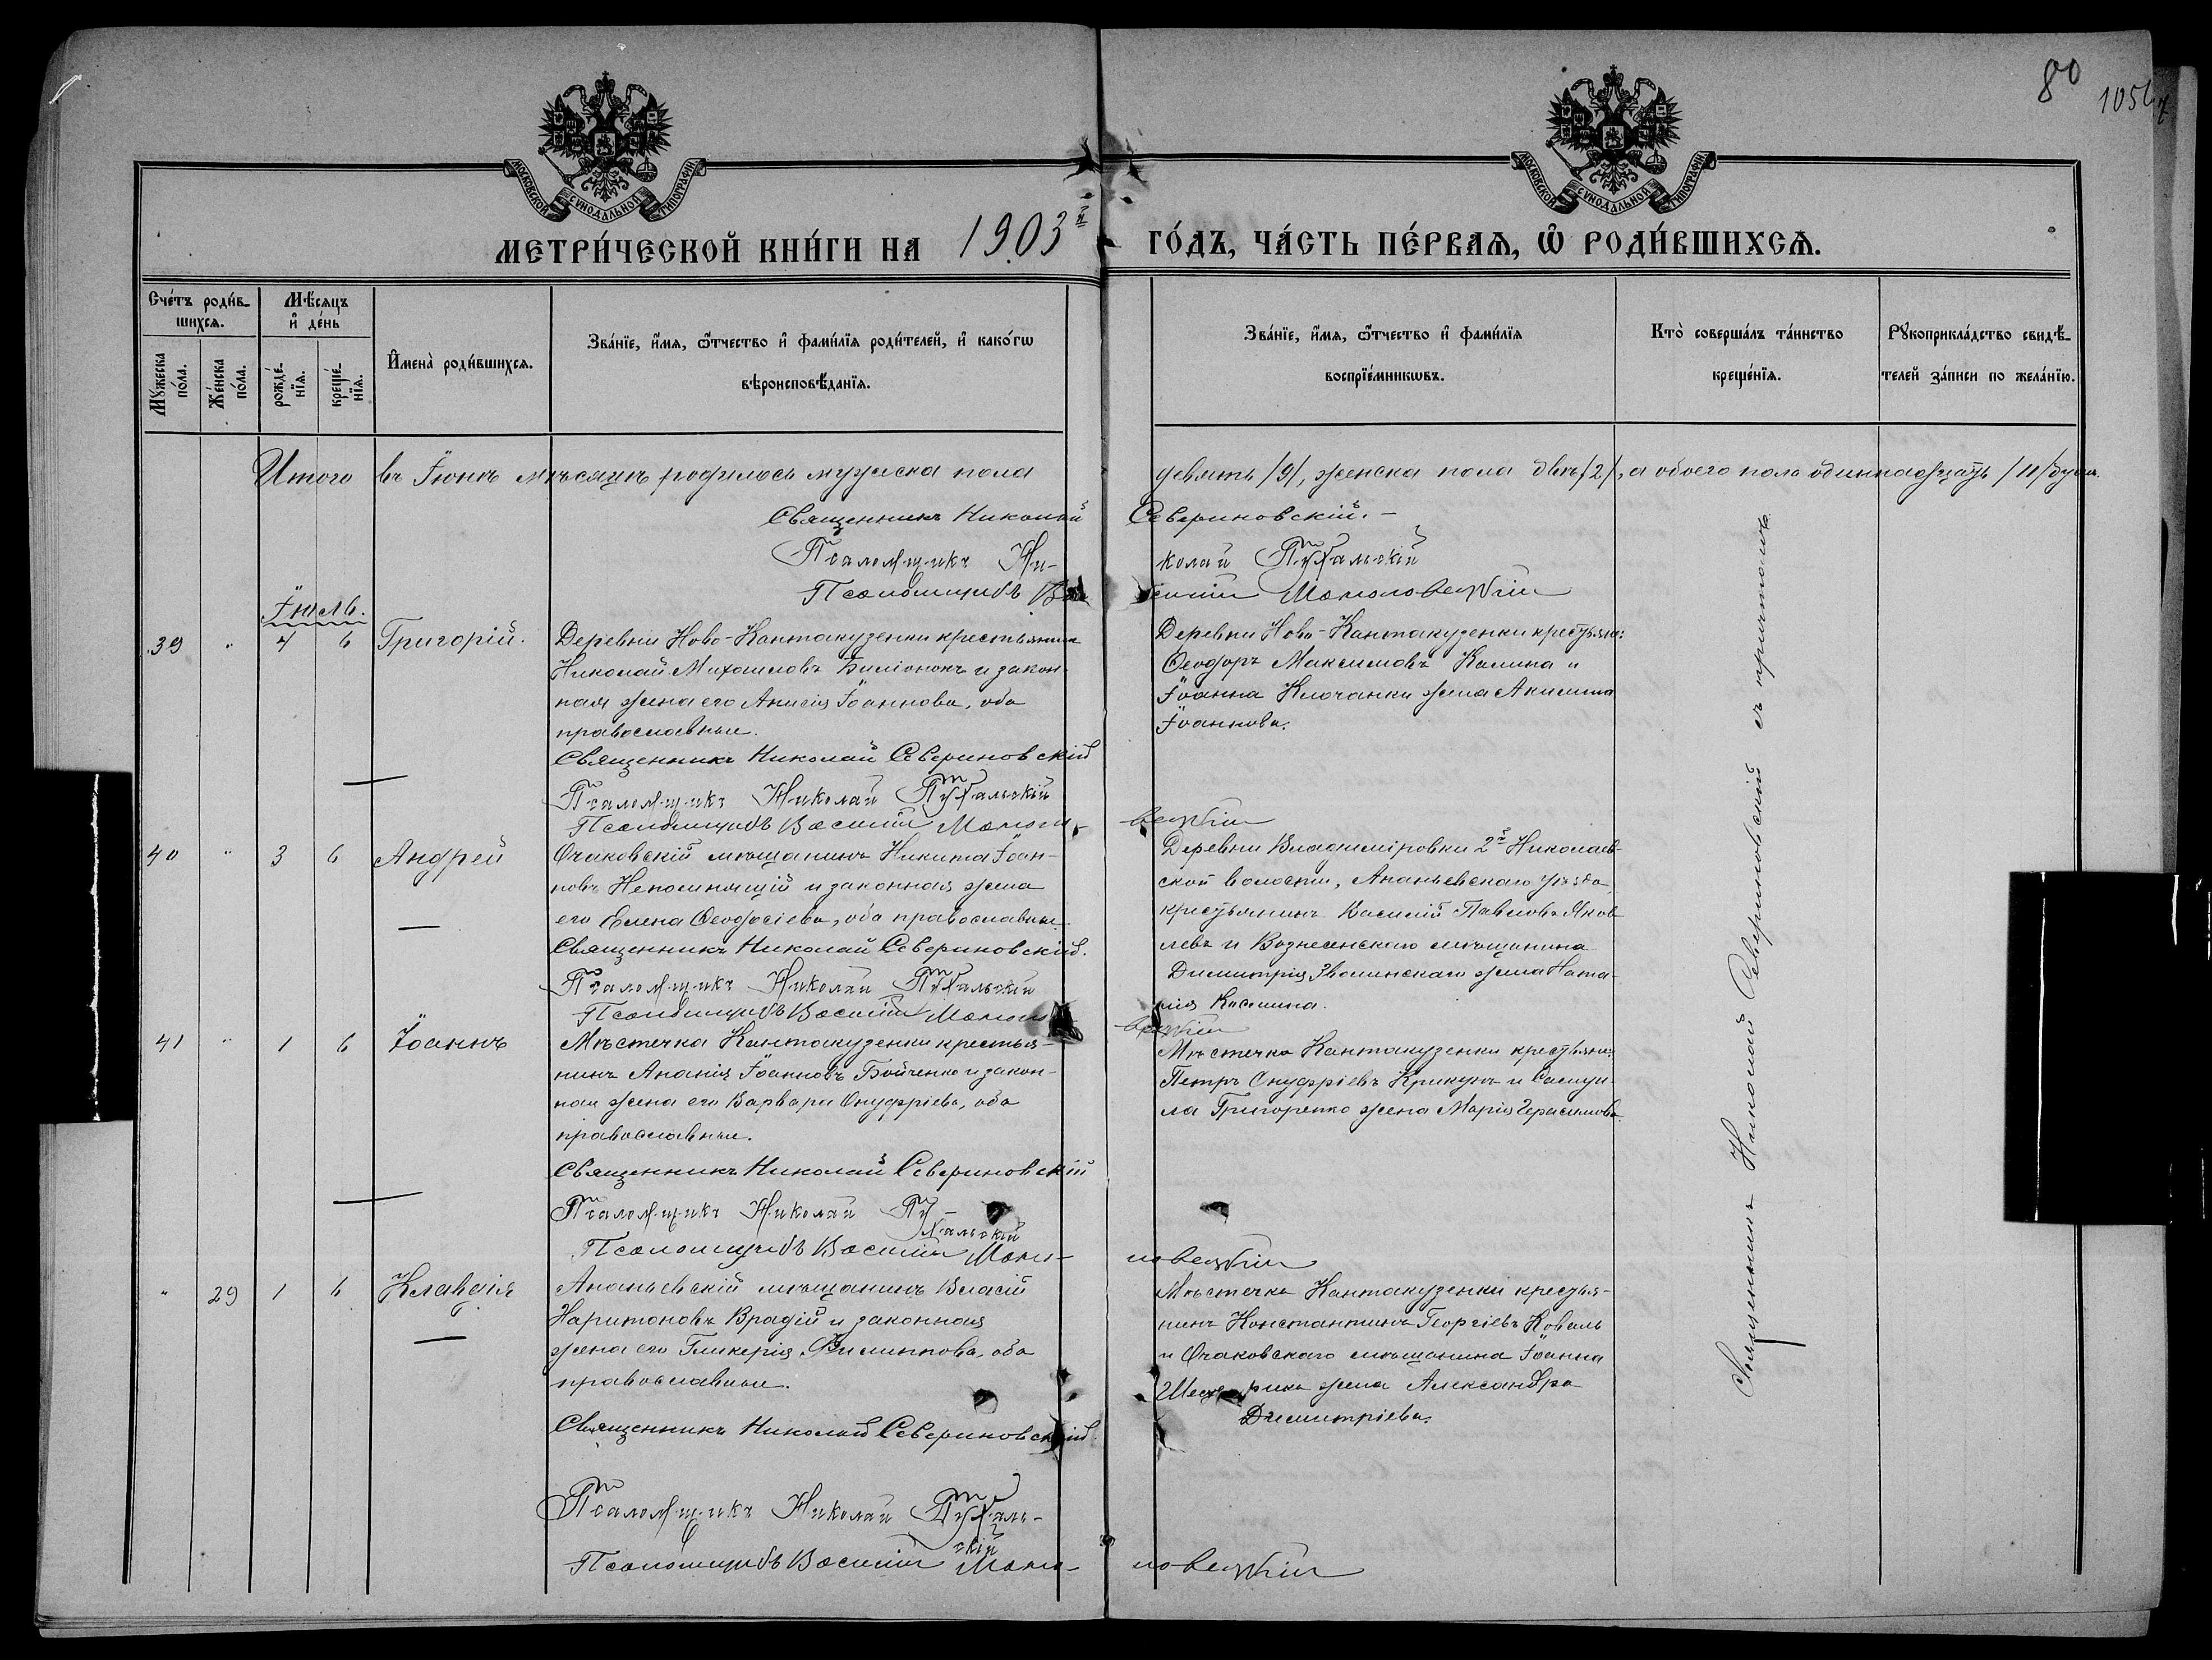 80
1056
МОСКОВСКОЙ СѴНОДАЛЬНОЙ ТИПОГРАФІИ
МОСКОВСКОЙ СѴНОДАЛЬНОЙ ТИПОГРАФІИ
МЕТРИ́ЧЕСКОЙ КНИ́ГИ НА 1903й ГО́ДЪ, ЧА́СТЬ ПЕ́РВАѦ, Ѿ РОДИ́ВШИХСѦ.
Сче́тъ роди́в-
шихсѧ.
Мꙋ́жеска по́ла.
Же́нска по́ла.
Мѣ́сѧцъ
и҆ де́нь
рожде́-
нїѧ.
креще́-
нїѧ.
И҆мена̀ роди́вшихсѧ.
Зва́нїе, и҆́мѧ, ѻ҆́тчество и҆ фами́лїѧ роди́телей, и҆ како́гѡ
вѣроисповѣ́данїѧ.
Зва́нїе, и҆́мѧ, ѻ҆́тчество и҆ фами́лїѧ
воспрїе́мникѡвъ.
Кто̀ соверша́лъ та́инство
креще́нїѧ.
Рꙋкоприкла́дство свидѣ́-
телей за́писи по жела́нїю.
Итого въ Іюнѣ мѣсяцѣ родилось мужеска пола девять /9/, женска пола двѣ /2/, а обоего пола одиннадцать /11/ душъ.
Священникъ Николай Севериновскій.-
Псаломщикъ Ни-колай Пухальскій
Псаломщикъ Василій
Іюль.
39 " 4 6 Григорій.
Деревни Ново-Кантакузенки крестьянин
Николай Михаиловъ и закон-
ная жена его Анисія Іоаннова, оба
православные.
Священникъ Николай Севериновскій
Псаломщикъ Николай Пухальскій
Псаломщикъ Василій
Деревни Ново-Кантакузенки крестьяне:
Ѳеодоръ Максимовъ Калина и
Іоанна Клочанки жена Акилина
Іоаннова.
40 " 3 6 Андрей
Очаковскій мѣщанинъ Никита Іоан-
новъ Непомнящій и законная жена
его Елена Ѳеодосіева, оба православные
Священникъ Николай Севериновскій.
Псаломщикъ Николай Пухальскій
Псаломщикъ Василій
Деревни Владиміровки 2й Николаев-
ской волости, Ананьевскаго уѣзда,
крестьянинъ Василій Павловъ Яков-
левъ и Вознесенскаго мѣщанина
Димитрія Зволинскаго жена Ната-
лія Косьмина.
41 " 1 6 Іоаннъ
Мѣстечка Кантакузенки крестья-
нинъ Ананія Іоанновъ Бойченко и закон-
ная жена его Варвара Онуфріева, оба
православные.
Священникъ Николай Севериновскій
Псаломщикъ Николай Пу-
хальскій
Псаломщикъ Василій
Мѣстечка Кантакузенки крестьяне:
Петръ Онуфріевъ Крикунъ и Самуи-
ла Григоренко жена Марія Герасимова
" 29 1 6 Клавдія
Ананьевскій мѣщанинъ Власій
Харитоновъ Врадій и законная
жена его Гликерія Филиппова, оба
православные.
Священникъ Николай Севериновскій.
Псаломщикъ Николай Пухаль-
скій
Псаломщикъ Василій
Мѣстечка Кантакузенки крестья-
нинъ Константинъ Георгіевъ Коваль
и Очаковскаго мѣщанина Іоанна
жена Александра
Димитріева.
Священникъ Николай Севериновскій съ причтомъ